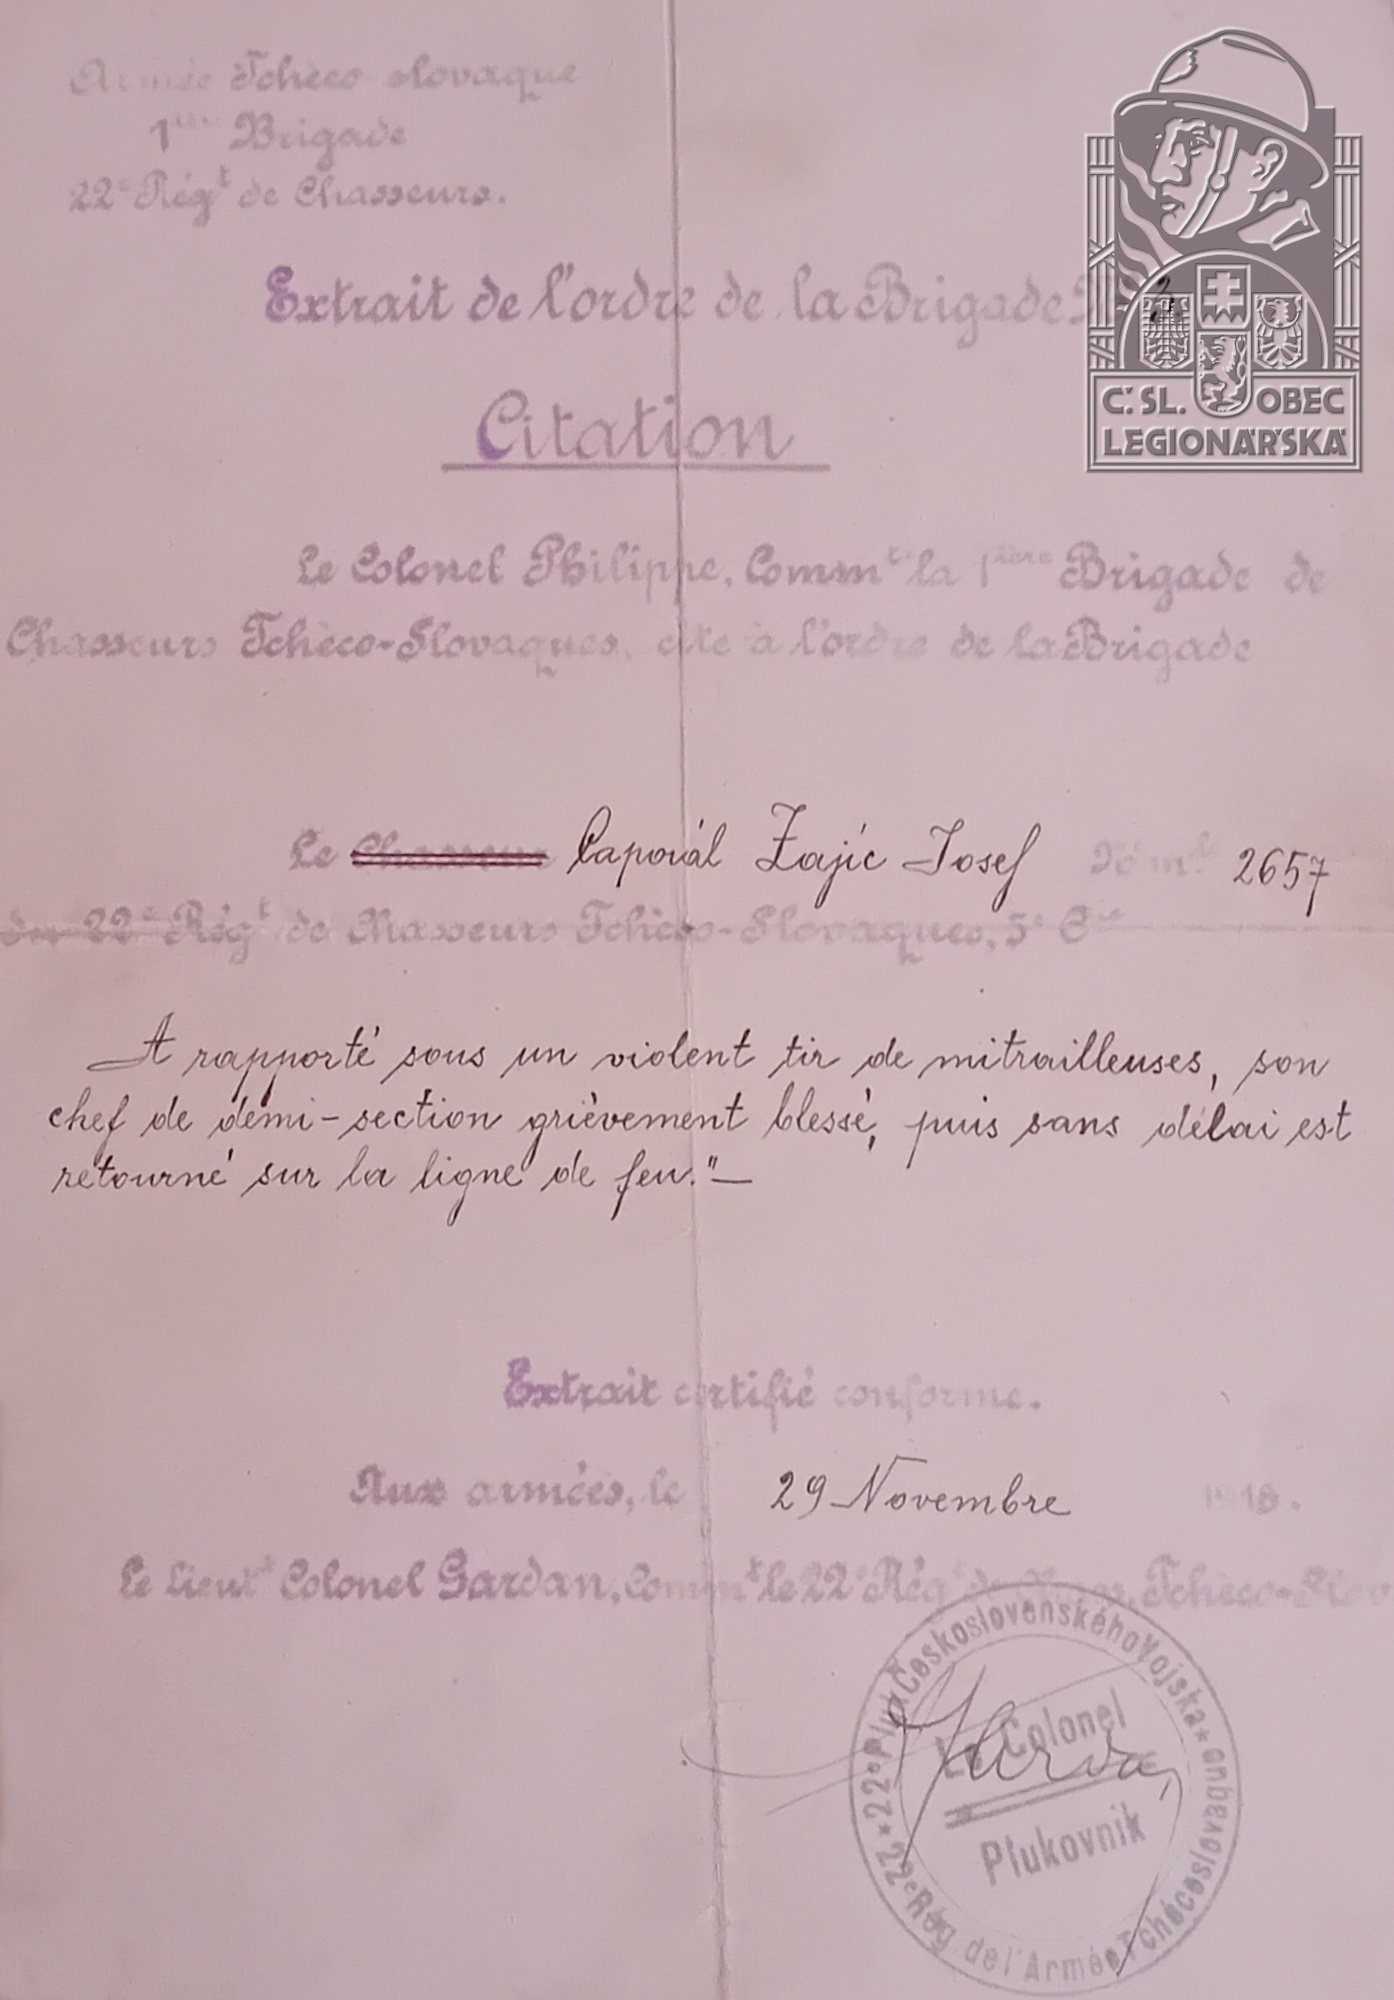 Armée Tchèco slovaque
1ère Brigade
22e Régt de Chasseurs.
Extrait de l'ordre de la Brigade
Citation
Le Colonel Philippe, Commt la 1ière Brigade de
Chasseurs Tchèco-Slovaques, cite à l'ordre de la Brigade
Le Chasseur Caporál Zajíc Josef No mle 2657
du 22e Régt de Chasseurs Tchèco-Slovaques, 5e Cie
A rapporté sous un violent tir de mitrailleuses, son
chef de demi-section grièvement blessé, puis sans délai est
retourné sur la ligne de feu."—
Extrait certifié conforme.
Aux armées, le 29 Novembre 1918.
Le Lieutt Colonel Gardan, Commt le 22e Régt de Chass. Tchèco-Slov
22e Pluk Československého Vojska
22e Rég de l'Armée Tchécoslovaque
Le Colonel
Plukovnik
Č. SL. OBEC
LEGIONÁŘSKÁ